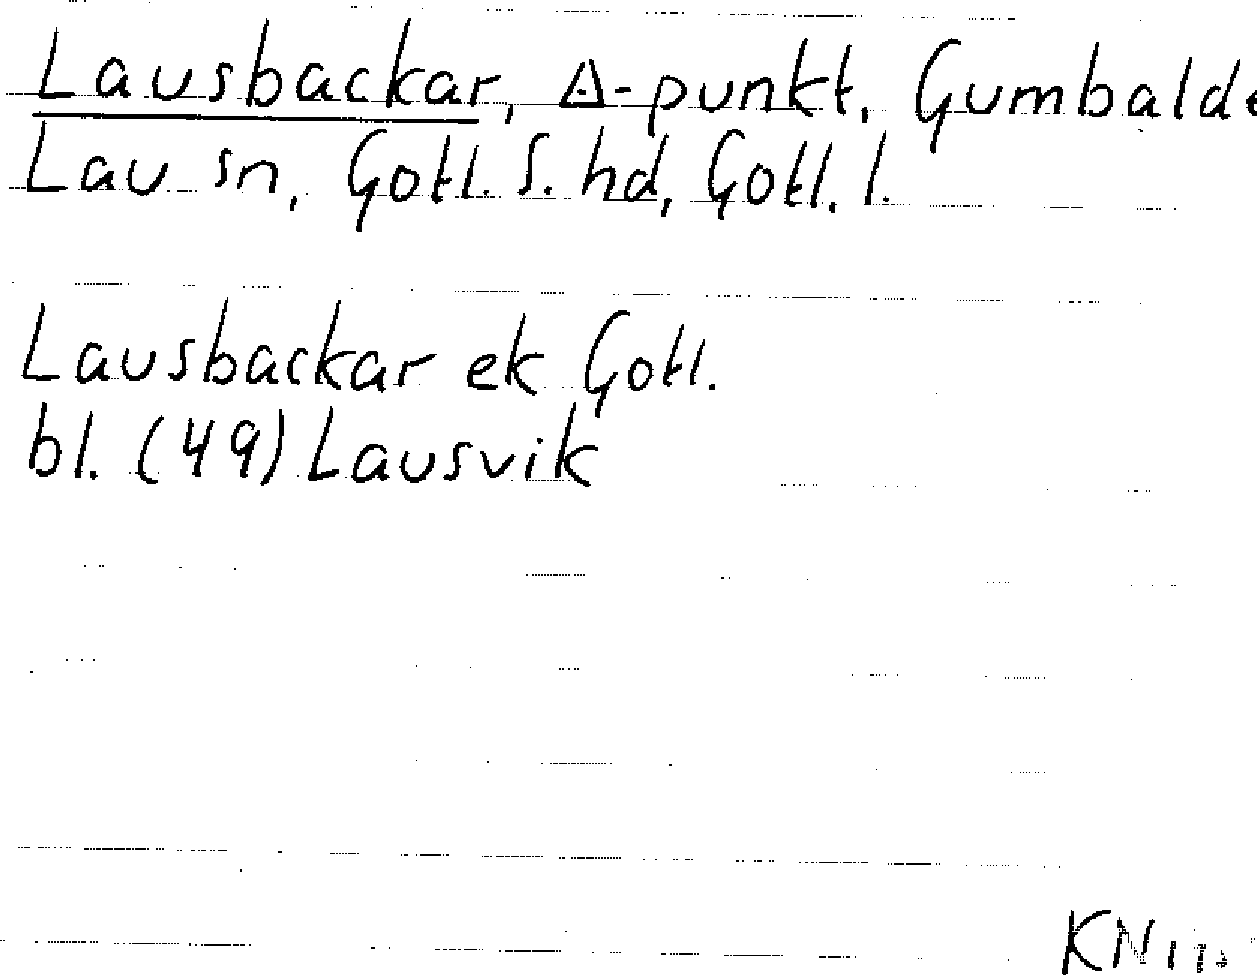 Lausbackar, ⚠-punkt, Gumbalde
Lau sn, Gotl. S. hd, Gotl. l.
Lausbackar ek Gotl.
bl. (49) Lausvik